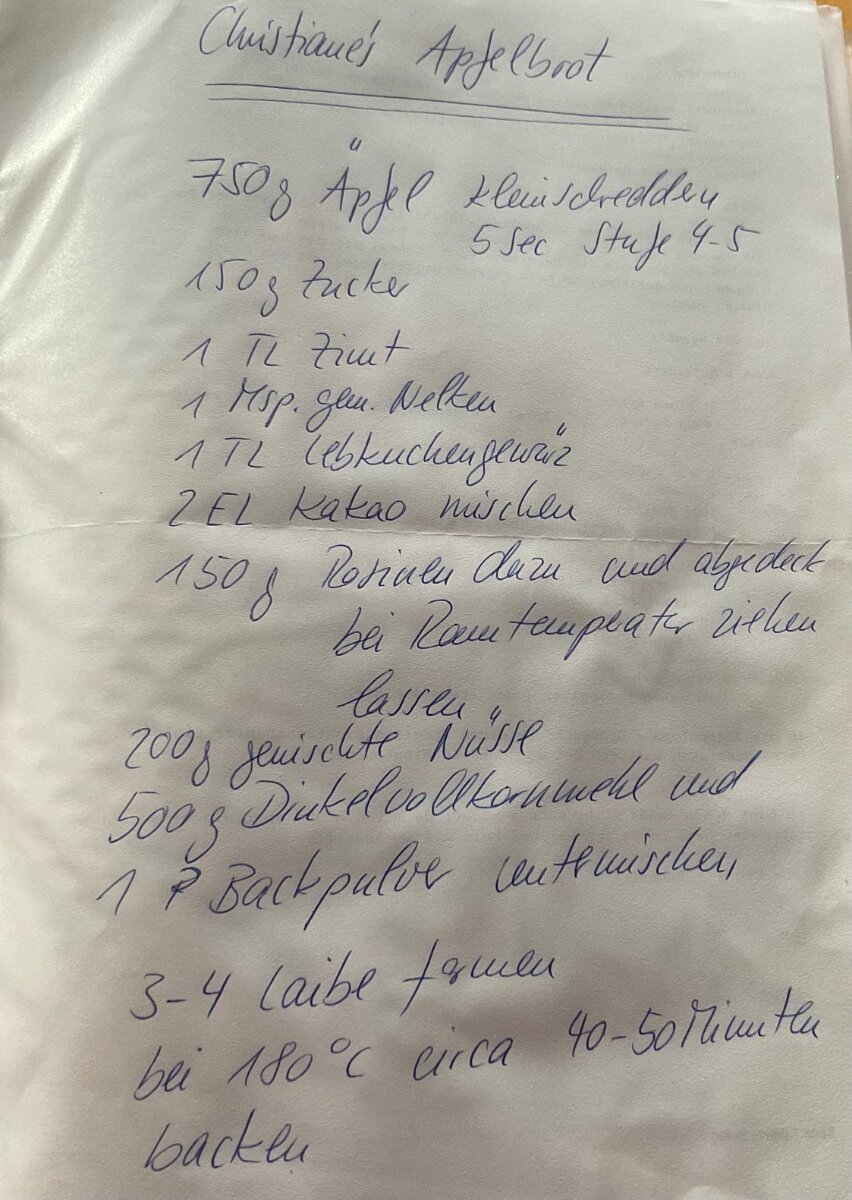 Christiane's Apfelbrot
750g Äpfel kleinschreddern
5 Sec Stufe 4-5
150g Zucker
1 TL Zimt
1 Msp. gem. Nelken
1 TL Lebkuchengewürz
2 EL Kakao mischen
150g Rosinen dazu und abgedeckt
bei Raumtemperatur ziehen
lassen
200g gemischte Nüsse
500g Dinkelvollkornmehl und
1 P Backpulver untermischen,
3-4 Laibe formen
bei 180°C circa 40-50 Minuten
backen